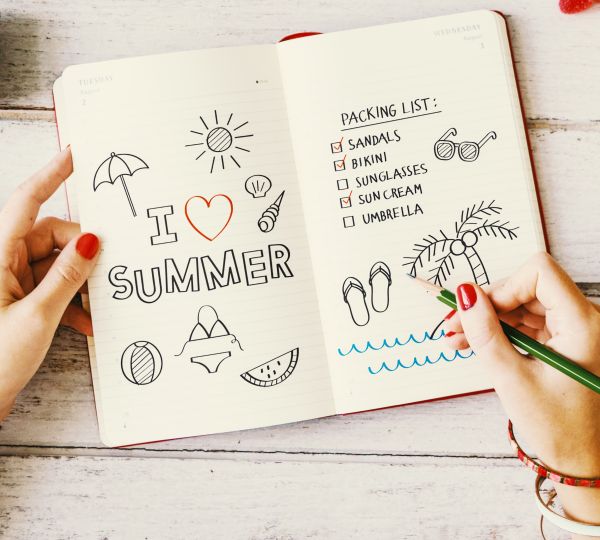 TUESDAY
August
2
I
SUMMER
WEDNESDAY
August
3
PACKING LIST:
SANDALS
BIKINI
SUNGLASSES
SUN CREAM
UMBRELLA